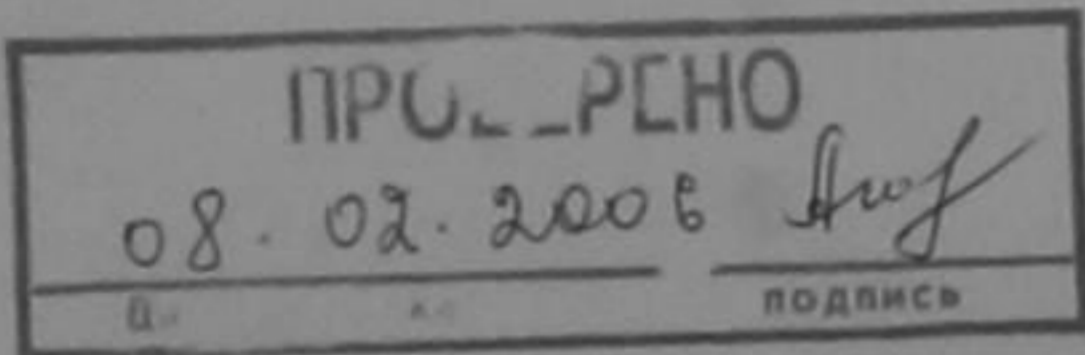 ПРОВЕРЕНО
08.02.2006
подпись